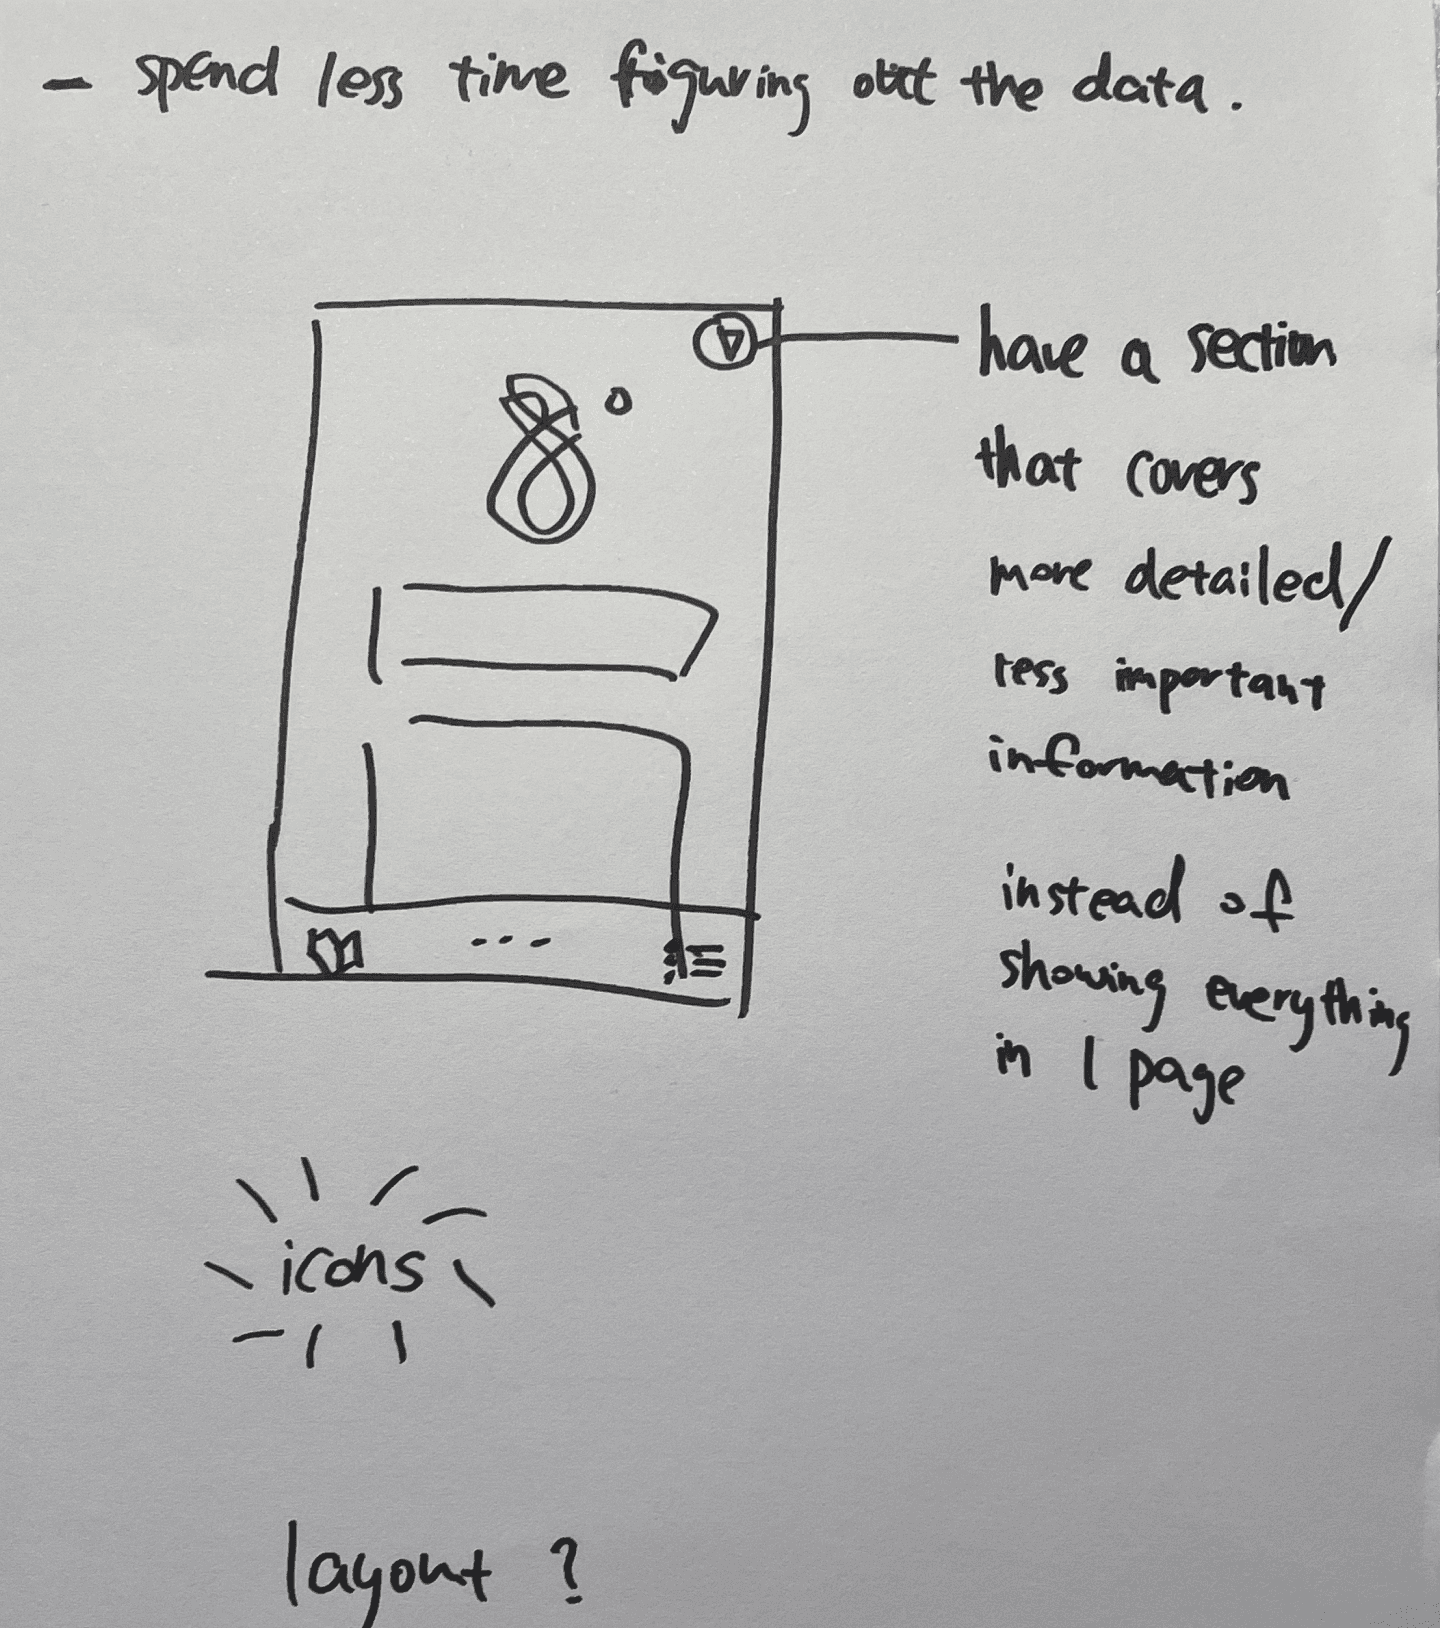 - spend less time figuring out the data.
8°
have a section
that covers
more detailed/
less important
information
instead of
showing everything
in 1 page
icons
layout ?